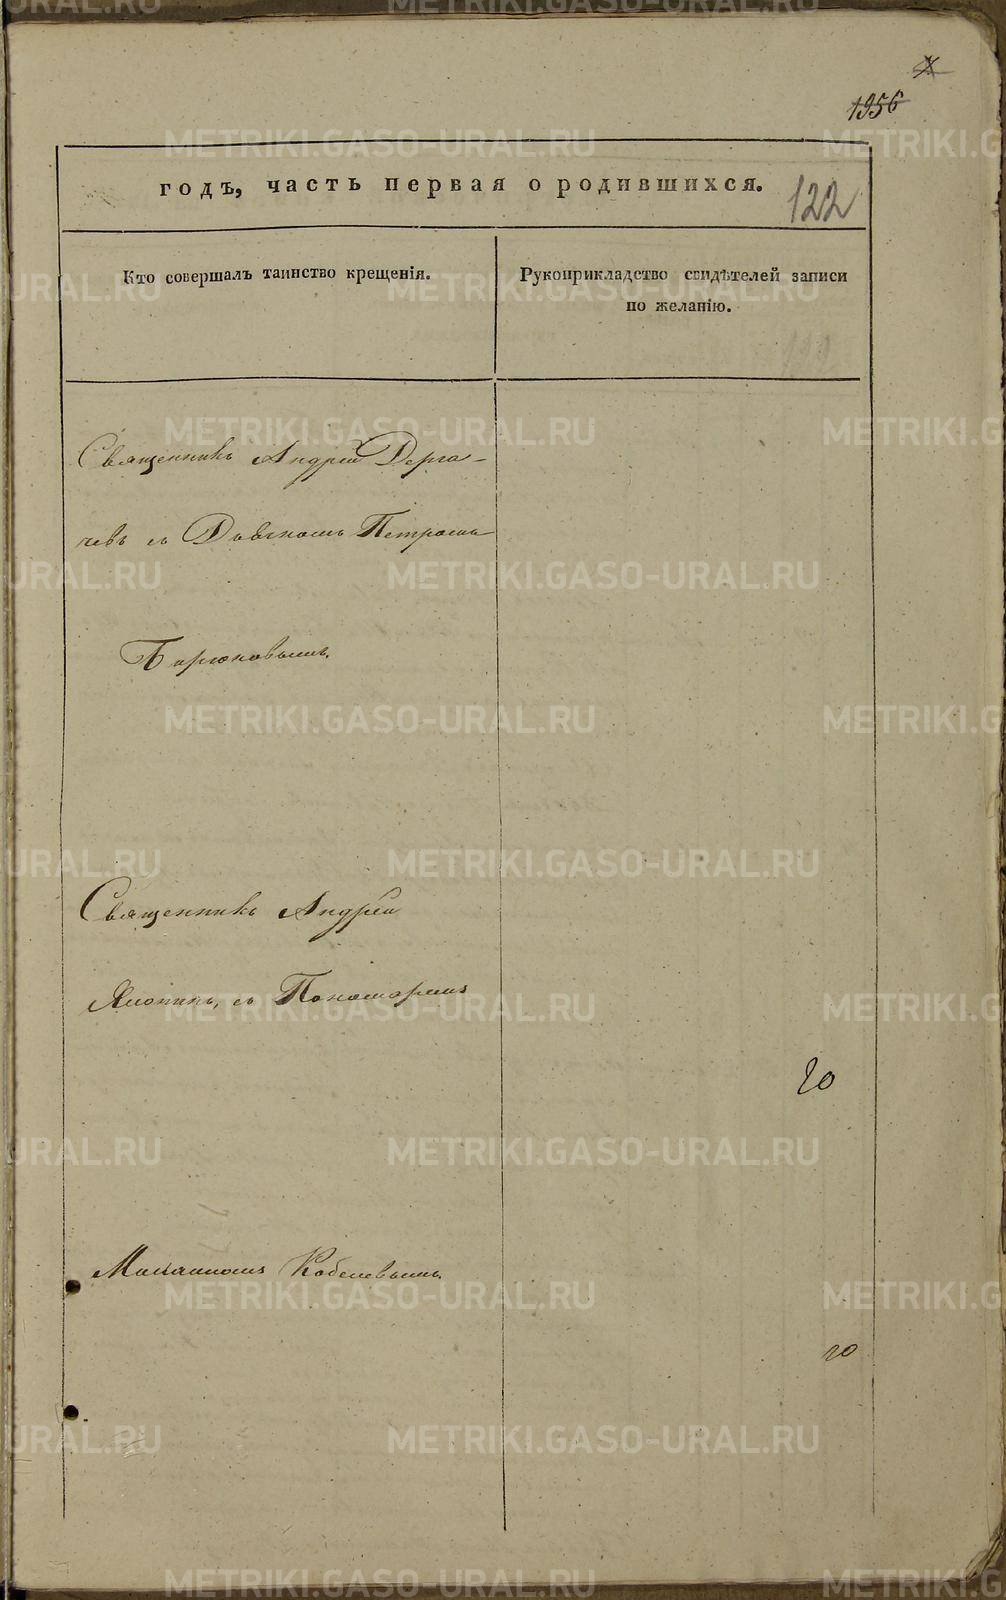 1956
годъ, часть первая о родившихся.
122
Кто совершалъ таинство крещенія.
Рукоприкладство свидѣтелей записи
по желанію.
Священникъ Андрей Дерга-
чевъ съ Дьякомъ Петромъ
Бирюковымъ.
Священникъ Андрей
Японинъ, съ Пономаремъ
20
Михаиломъ Кобелевымъ.
20
METRIKI.GASO-URAL.RU